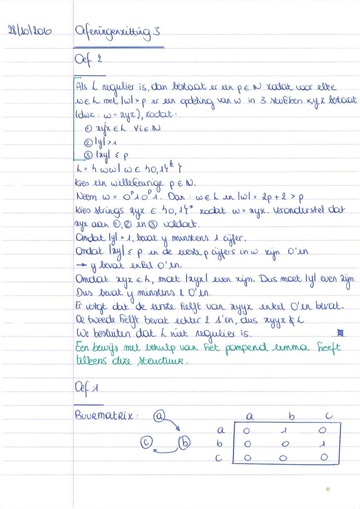 28/10/2010 Oefeningenzitting 3
Oef 2
Als L regulier is, dan bestaat er een p ∈ N zodat voor elke
w ∈ L met |w| > p er een opdeling van w in 3 stukken x,y,z bestaat
(dwz: w = xyz), zodat:
① xyⁱz ∈ L ∀i ∈ N
② |y| > 1
③ |xy| ≤ p
L = { ww | w ∈ {0,1}* }
Kies een willekeurige p ∈ N.
Neem w = 0ᵖ10ᵖ1. Dan: w ∈ L en |w| = 2p+2 > p
Kies strings xyz ∈ {0,1}* zodat w = xyz. Veronderstel dat
xyz aan ①, ② en ③ voldoet.
Omdat |y| > 1, bevat y minstens 1 cijfer.
Omdat |xy| ≤ p en de eerste p cijfers in w zijn 0'en
→ y bevat enkel 0'en.
Omdat xyz ∈ L, moet |xyz| even zijn. Dus moet |y| even zijn.
Dus bevat y minstens 2 0'en.
Er volgt dat de eerste helft van xyyz enkel 0'en bevat.
De tweede helft bevat echter 2 1'en, dus xyyz ∉ L
We besluiten dat L niet regulier is.
Een bewijs met behulp van het pompend lemma heeft
telkens deze structuur.
Oef 1
Buurmatrix: a a b c
a 0 1 0
c b b 0 0 1
c 0 0 0